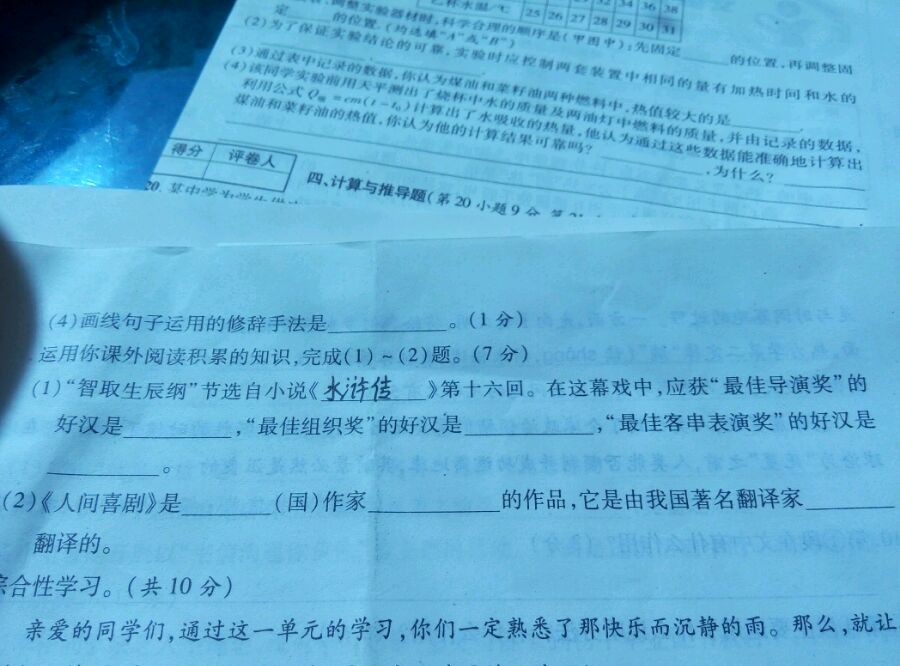 乙杯水温/℃ 25 26 27 28 29 30 31
32 34 36 38
调整实验器材时,科学合理的顺序是(甲图中):先固定______的位置,再调整固
定______的位置.(均选填“A”或“B”)
(2)为了保证实验结论的可靠,实验时应控制两套装置中相同的量有加热时间和水的
______.
(3)通过表中记录的数据,你认为煤油和菜籽油两种燃料中,热值较大的是______.
(4)该同学实验前用天平测出了烧杯中水的质量及两油灯中燃料的质量,并由记录的数据,
利用公式Q吸=cm(t-t₀)计算出了水吸收的热量,他认为通过这些数据能准确地计算出
煤油和菜籽油的热值,你认为他的计算结果可靠吗?______.为什么?
得分 评卷人
四、计算与推导题(第20小题9分,第21
20. 某中学为学生供
(4)画线句子运用的修辞手法是______。(1分)
.运用你课外阅读积累的知识,完成(1)~(2)题。(7分)
(1)“智取生辰纲”节选自小说《水浒传》第十六回。在这幕戏中,应获“最佳导演奖”的
好汉是______,“最佳组织奖”的好汉是______,“最佳客串表演奖”的好汉是
______。
(2)《人间喜剧》是______(国)作家______的作品,它是由我国著名翻译家______
翻译的。
综合性学习。(共10分)
亲爱的同学们,通过这一单元的学习,你们一定熟悉了那快乐而沉静的雨。那么,就让